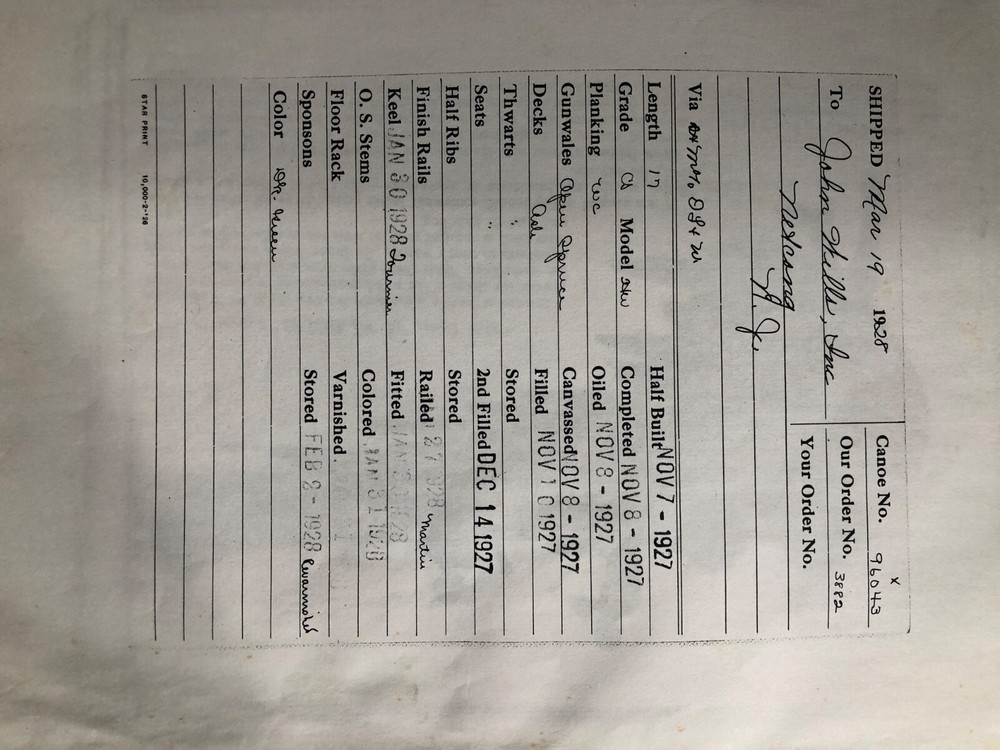 SHIPPED Mar 19 1928
Canoe No. 96043 x
To John Mills, Inc
Our Order No. 3882
Netcong
Your Order No.
N. J.
Via
Length 17 Half Built NOV 7 - 1927
Grade CS Model HW Completed NOV 8 - 1927
Planking WC Oiled NOV 8 - 1927
Gunwales Open Spruce Canvassed NOV 8 - 1927
Decks Ash Filled NOV 10 1927
Thwarts " Stored
Seats " 2nd Filled DEC 14 1927
Half Ribs Stored
Finish Rails Railed 27 1928 Martin
Keel JAN 30 1928 Fitted JAN 1928
O. S. Stems Colored JAN 31 1928
Floor Rack Varnished
Sponsons Stored FEB 2 - 1928
Color Dk. Green
STAR PRINT 10,000-2-'26